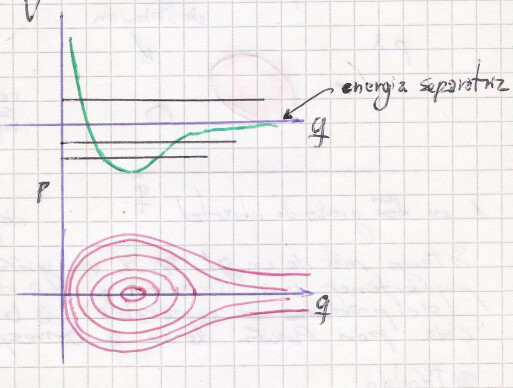 V
energia separatriz
q
p
q